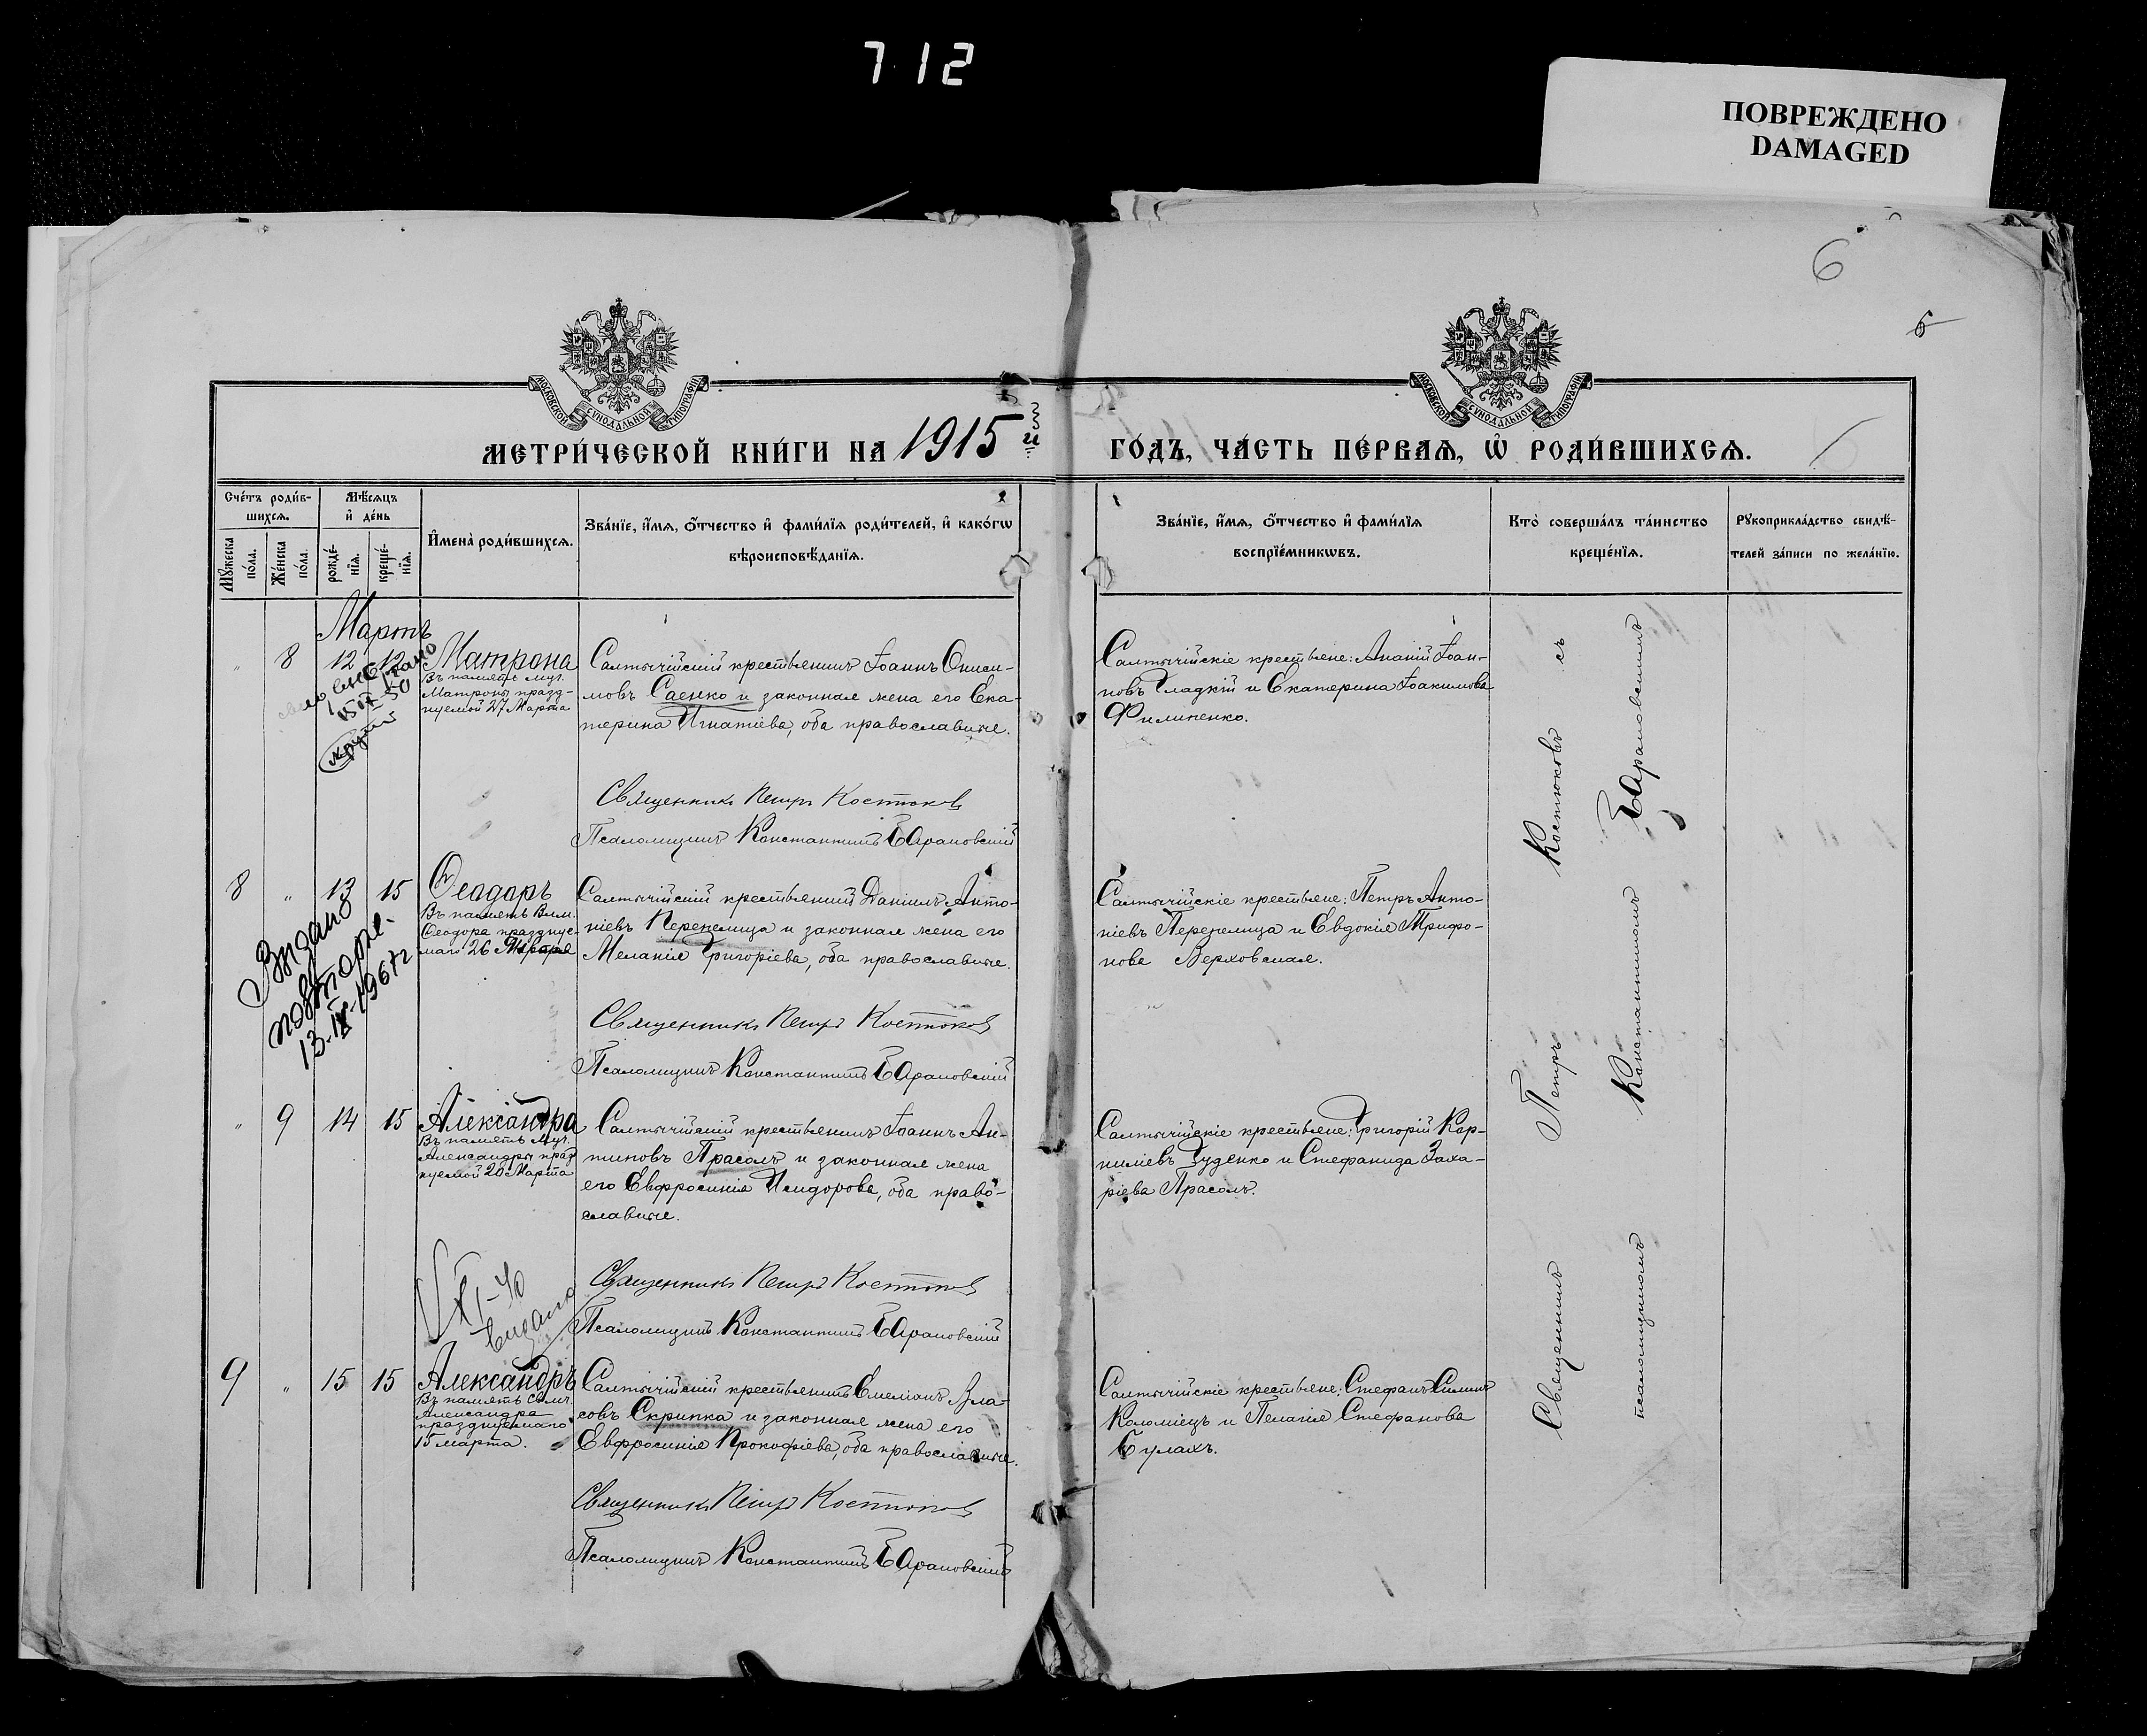 712
ПОВРЕЖДЕНО
DAMAGED
6
5
МОСКОВСКОЙ СѴНОДАЛЬНОЙ ТИПОГРАФІИ
МОСКОВСКОЙ СѴНОДАЛЬНОЙ ТИПОГРАФІИ
МЕТРИ́ЧЕСКОЙ КНИ́ГИ НА 1915 й
ГО́ДЪ, ЧА́СТЬ ПЕ́РВАѦ, Ѡ҆ РОДИ́ВШИХСѦ.
Сче́тъ роди́в-
шихсѧ.
Мꙋ́жеска по́ла.
Же́нска по́ла.
Мѣ́сѧцъ
и҆ де́нь
рожде́-
нїѧ.
креще́-
нїѧ.
И҆мена̀ роди́вшихсѧ.
Зва́нїе, и҆́мѧ, ѻ҆́тчество и҆ фами́лїѧ роди́телей, и҆ како́гѡ
вѣроисповѣ́данїѧ.
Зва́нїе, и҆́мѧ, ѻ҆́тчество и҆ фами́лїѧ
воспрїе́мникѡвъ.
Кто̀ соверша́лъ та́инство
креще́нїѧ.
Рꙋкоприкла́дство свидѣ́-
телей за́писи по жела́нїю.
Мартъ
" 8 12 12 Матрона
Въ память муч.
Матроны празд-
нуемой 27 Марта
Салтычійскій крестьянинъ Іоаннъ Ониси-
мовъ Саенко и законная жена его Ека-
терина Игнатіева, оба православные.
Священникъ Петръ Костюковъ
Псаломщикъ Константинъ Барановскій
Салтычійскіе крестьяне: Ананій Іоан-
новъ Гладкій и Екатерина Іоакимова
Филипенко.
8 " 13 15 Ѳеодоръ
Въ память Влм.
Ѳеодора праздnуе-
маго 26 Марта
Видано
повторне.
13.IX.1967г
Салтычійскій крестьянинъ Даніилъ Анто-
ніевъ Перепелица и законная жена его
Меланія Григоріева, оба православные.
Священникъ Петръ Костюковъ
Псаломщикъ Константинъ Барановскій
Салтычійскіе крестьяне: Петръ Анто-
ніевъ Перепелица и Евдокія Трифо-
нова Верховская.
" 9 14 15 Александра
Въ память Муч.
Александры празд
нуемой 20 Марта
Салтычійскій крестьянинъ Іоаннъ Ан-
типовъ Прасолъ и законная жена
его Евфросинія Исидорова, оба право-
славные.
Священникъ Петръ Костюковъ
Псаломщикъ Константинъ Барановскій
Салтычійскіе крестьяне: Григорій Кор-
ниліевъ Руденко и Стефанида Заха-
ріева Прасолъ.
видано
9 " 15 15 Александръ
Въ память Свмч.
Александра
празднуемаго
15 марта.
Салтычійскій крестьянинъ Емеліанъ Вла-
совъ Скрипка и законная жена его
Евфросинія Прокофіева, оба православные.
Священникъ Петръ Костюковъ
Псаломщикъ Константинъ Барановскій
Салтычійскіе крестьяне: Стефанъ Симин
Коломіецъ и Пелагія Стефанова
Булахъ.
Священникъ Петръ Костюковъ съ
псаломщикомъ Константиномъ Барановскимъ